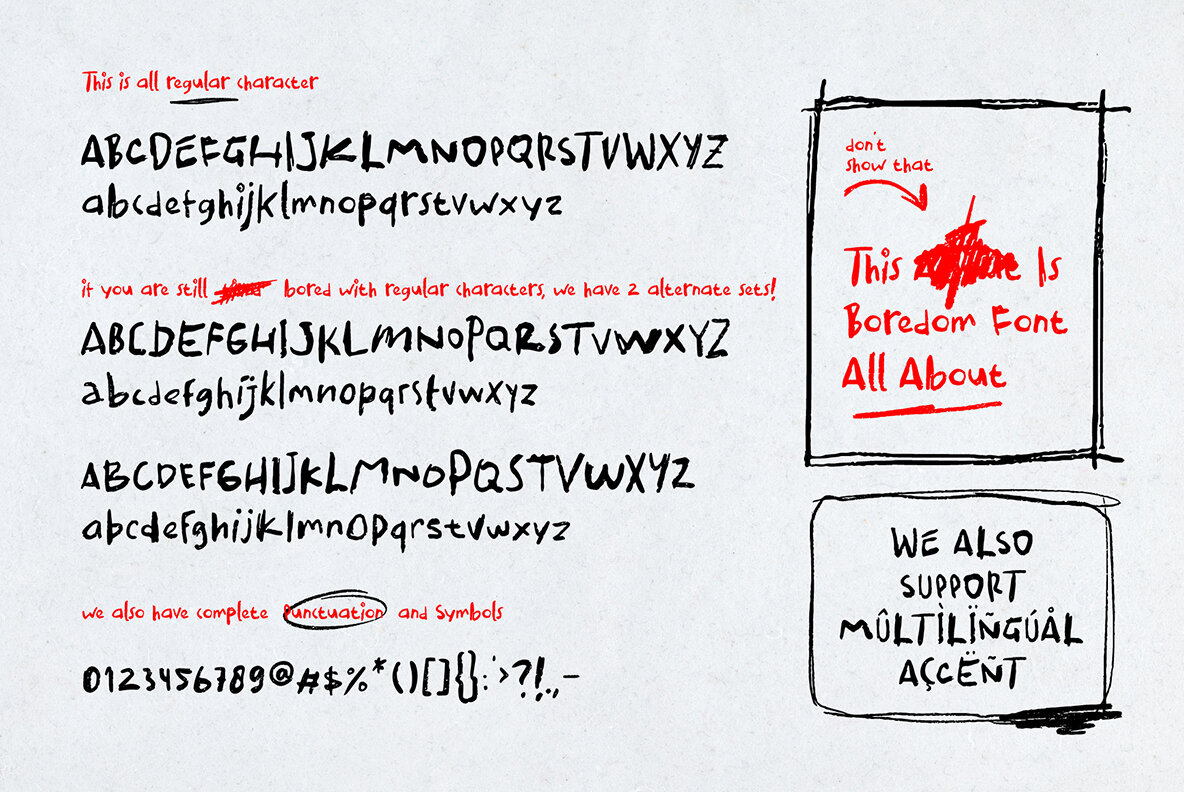 This is all regular character
ABCDEFGHIJKLMNOPQRSTVWXYZ
abcdefghijklmnopqrstvwxyz
if you are still bored with regular characters, we have 2 alternate sets!
ABCDEFGHIJKLMNOPQRSTVWXYZ
abcdefghijklmnopqrstvwxyz
ABCDEFGHIJKLMNOPQSTVWXYZ
abcdefghijklmnopqrstvwxyz
we also have complete Punctuation and Symbols
0123456789@#$%*()[]{}:'>?!.,-
don't
show that
This Is
Boredom Font
All About
WE ALSO
SUPPORT
MÛLTÌLÏÑGÚÅL
AÇCËÑT